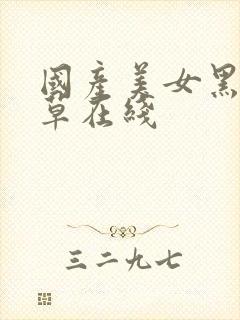 國產美女黑
草在綫
三二九七